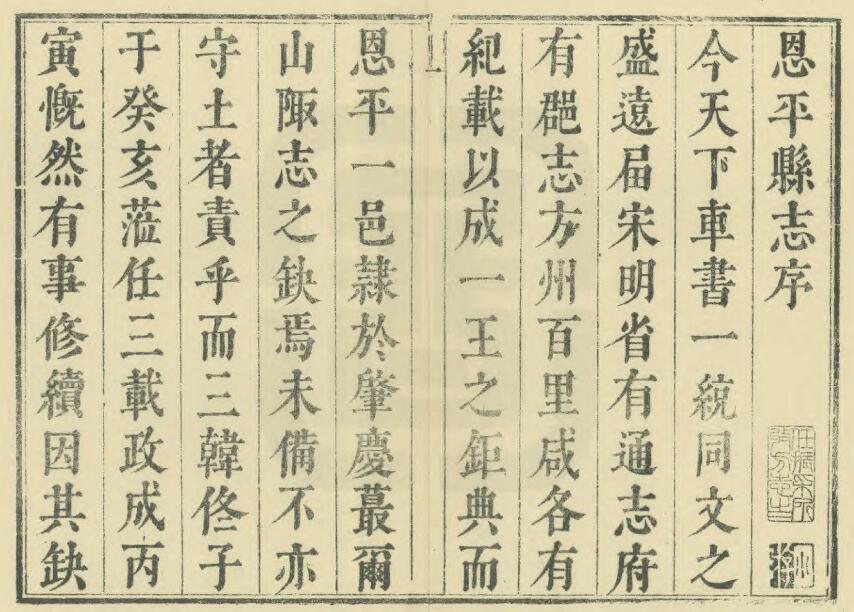 恩平縣志序
今天下車書一統同文之
盛遠屆宋明省有通志府
有郡志方州百里咸各有
紀載以成一王之鉅典而
恩平一邑隸於肇慶蕞爾
山陬志之缺焉未備不亦
守土者責乎而三韓佟子
于癸亥蒞任三載政成丙
寅慨然有事修續因其缺